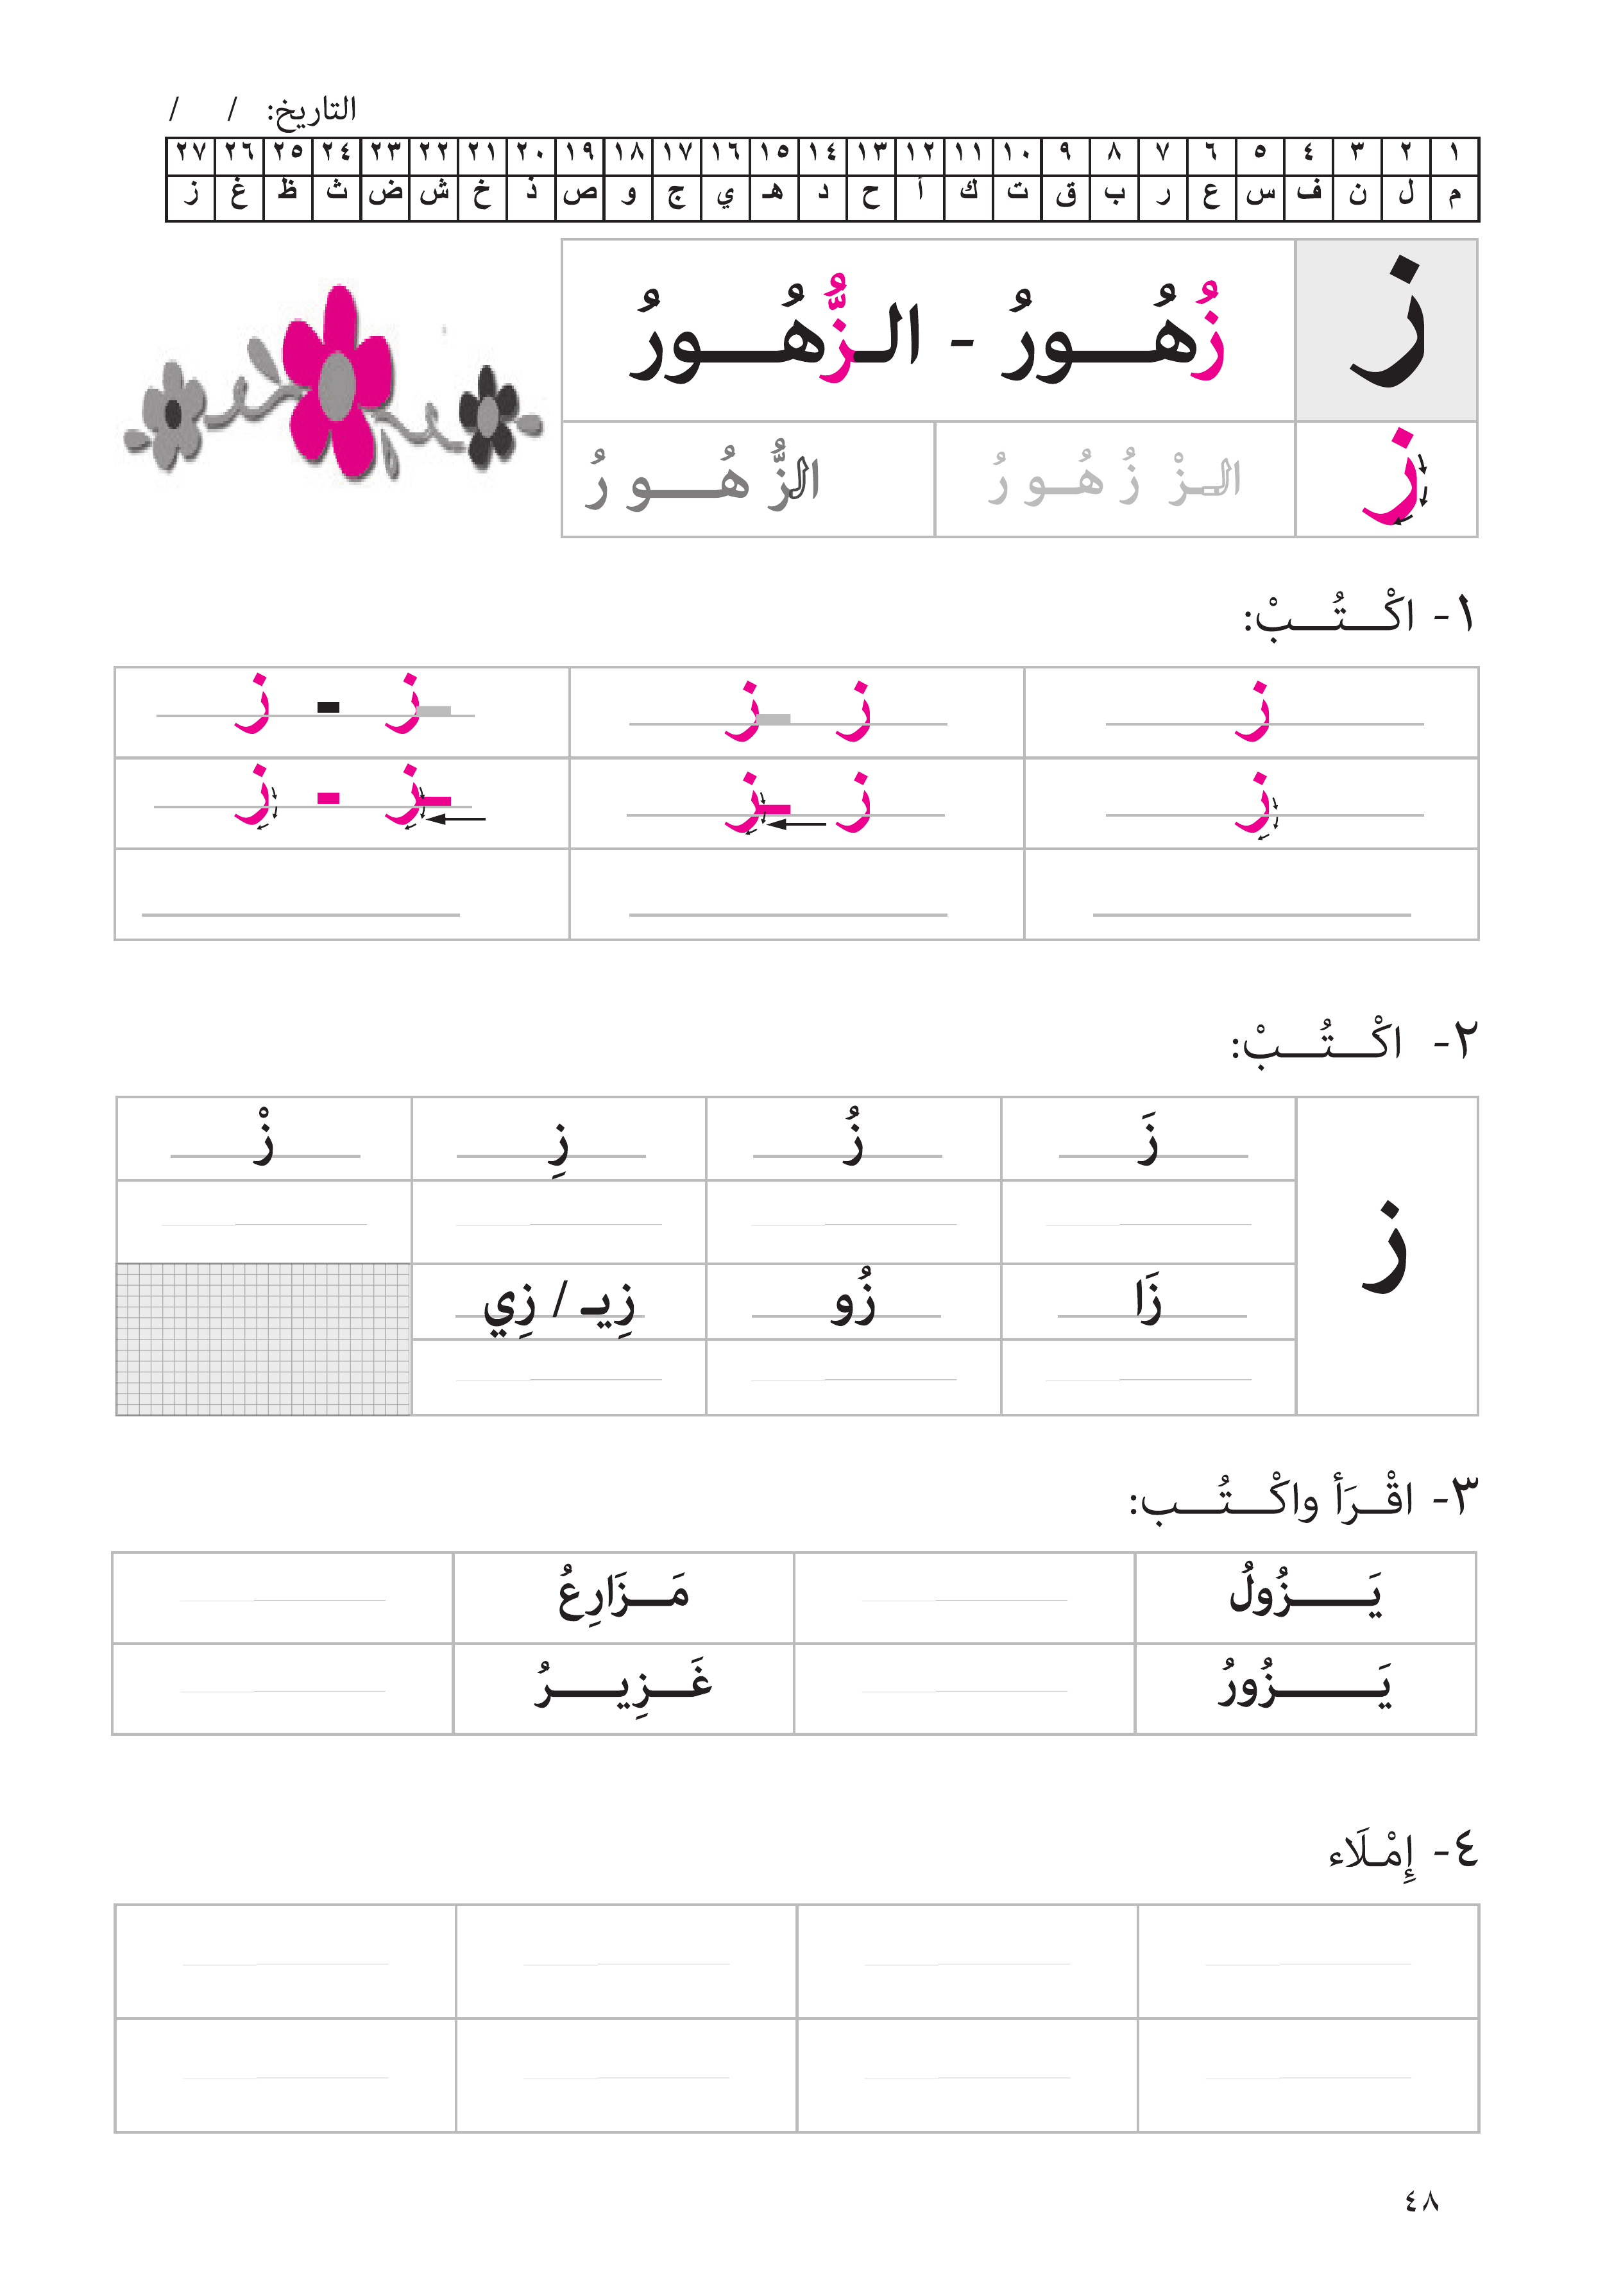 التاريخ: / /
١ ٢ ٣ ٤ ٥ ٦ ٧ ٨ ٩ ١٠ ١١ ١٢ ١٣ ١٤ ١٥ ١٦ ١٧ ١٨ ١٩ ٢٠ ٢١ ٢٢ ٢٣ ٢٤ ٢٥ ٢٦ ٢٧
م ل ن ف س ع ر ب ق ت ك أ ح د هـ ي ج و ص ذ خ ش ض ث ظ غ ز
ز زُهُـــورُ - الـزُّهُـــورُ
ز الـزْ زُ هُـو رُ الزُّ هُـــو رُ
١- اكْـــتُـــبْ:
ز ز ـز ـز - ز
ز ز ـز ـز - ز
٢- اكْـــتُـــبْ:
ز زَ زُ زِ زْ
زَا زُو زِيـ / زِي
٣- اقْـــرَأ واكْـــتُـــب:
يَـــزُولُ مَـــزَارِعُ
يَـــزُورُ غَـــزِيـــرُ
٤- إِمْـلَاء
٤٨